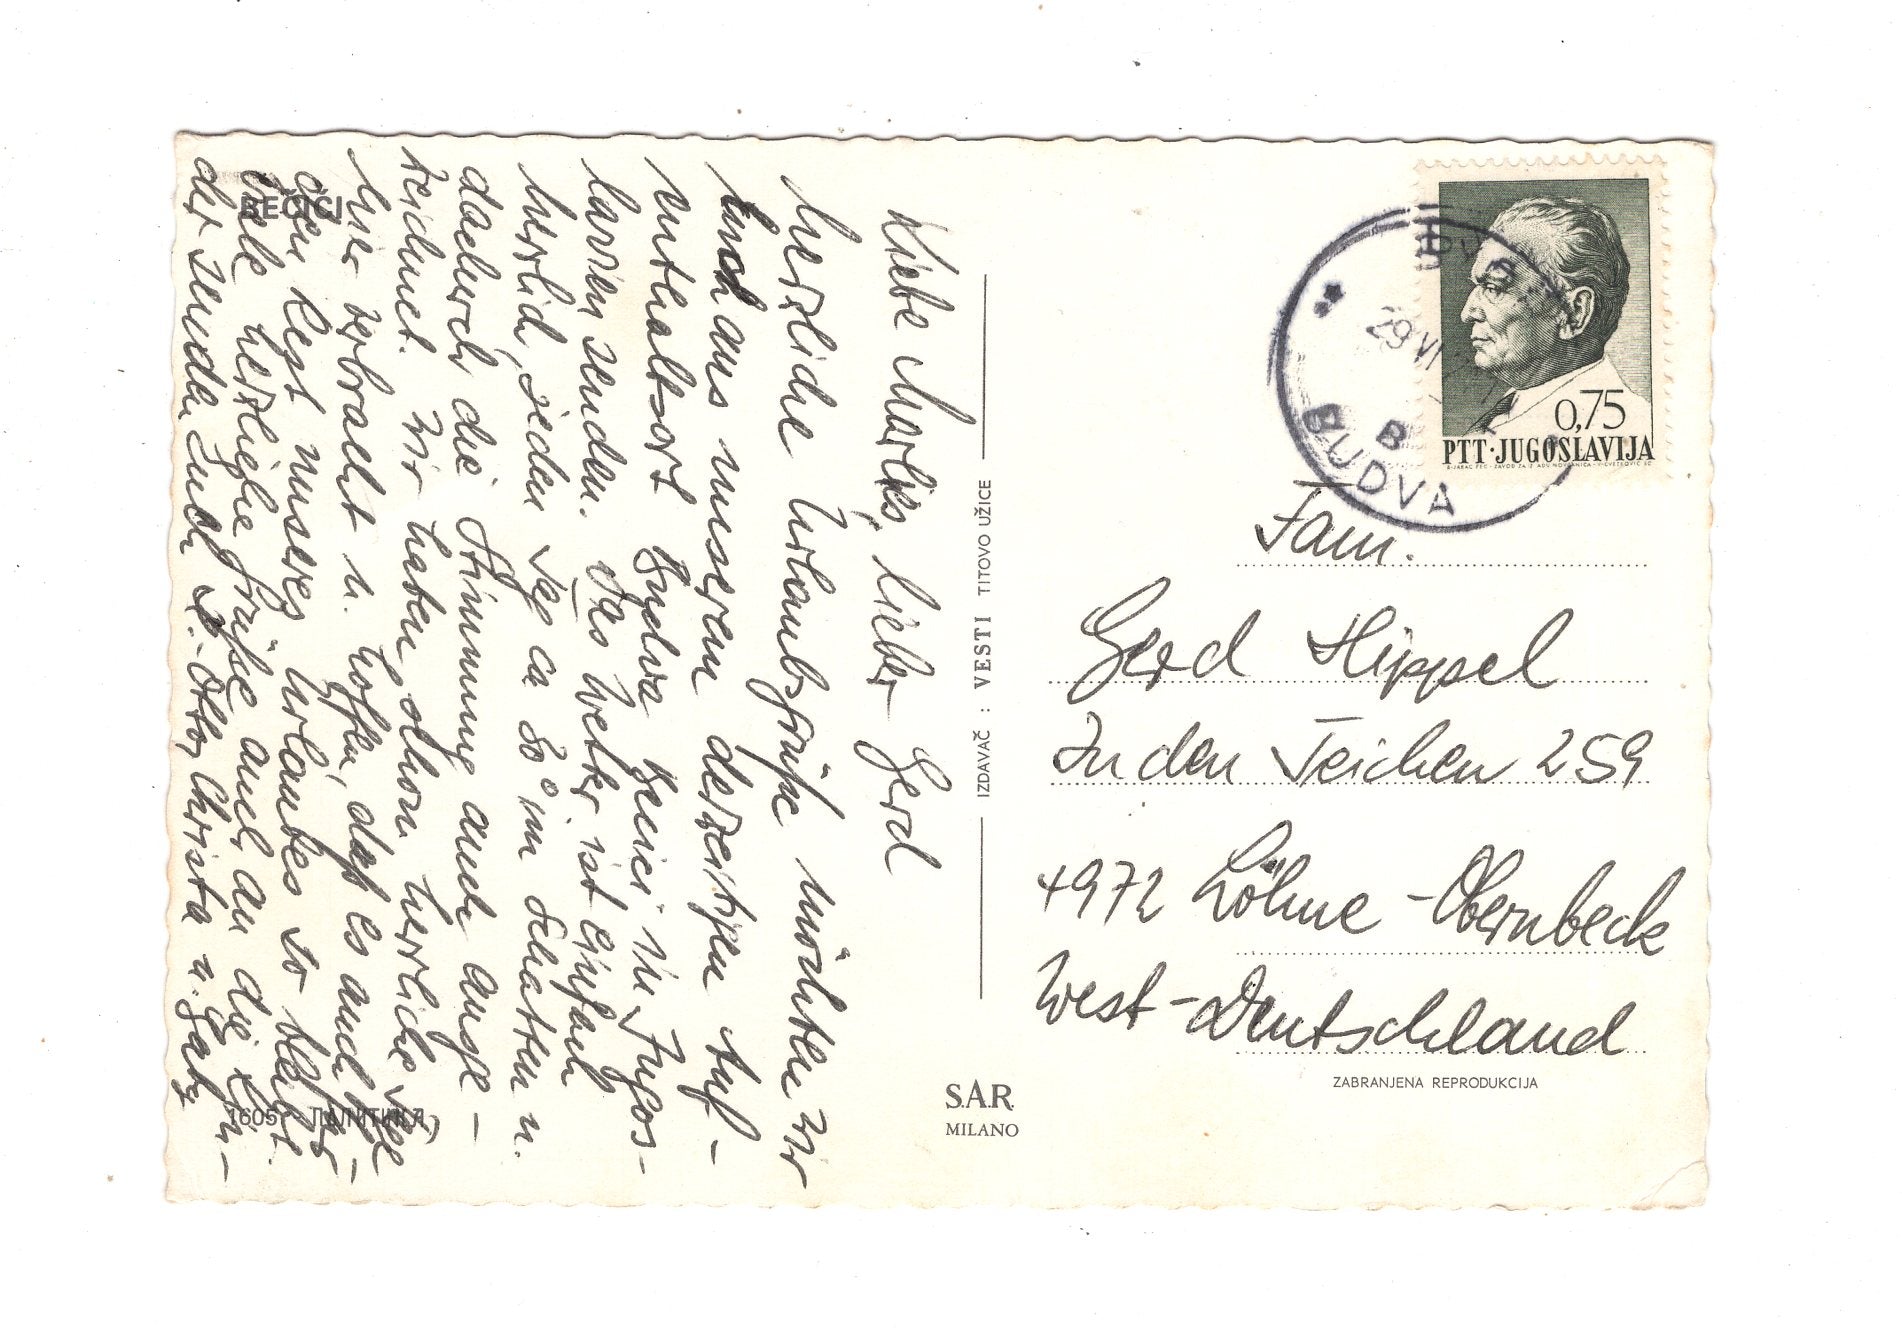 BEČIĆI
Liebe Marlies, lieber Gerd
herzliche Urlaubsgrüße möchten wir
Euch aus unserem derzeitigen Auf-
enthaltsort Budva Becici in Jugos-
lavien senden. Das Wetter ist einfach
herrlich, jeden Tag ca 30° im Schatten u.
dadurch die Stimmung auch ausge-
zeichnet. Wir haben schon herrliche Tage
hier verbracht u. hoffen, daß es auch für
den Rest unseres Urlaubes so bleibt.
Viele herzliche Grüße auch an die
der senden Euch Otto, Christa u. Gaby
1605 ПОЛИТИКА
IZDAVAČ : VESTI TITOVO UŽICE
S.A.R.
MILANO
29 VI
B
BUDVA
0,75
PTT·JUGOSLAVIJA
Fam.
Gerd Hippel
In den Teichen 259
4972 Löhne-Obernbeck
West-Deutschland
ZABRANJENA REPRODUKCIJA